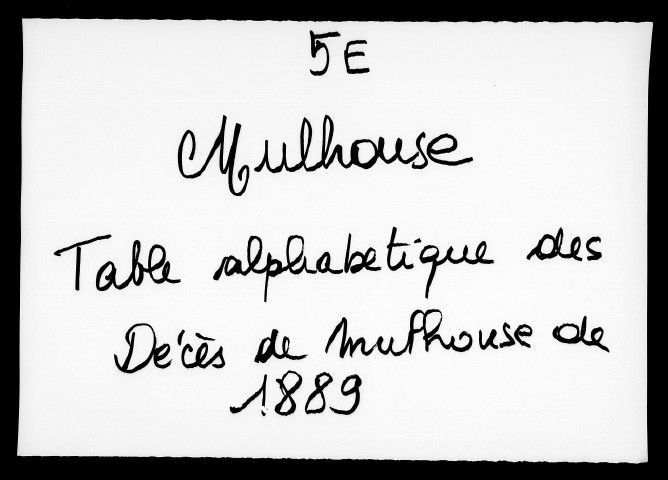 5E
Mulhouse
Table alphabetique des
Décès de Mulhouse de
1889